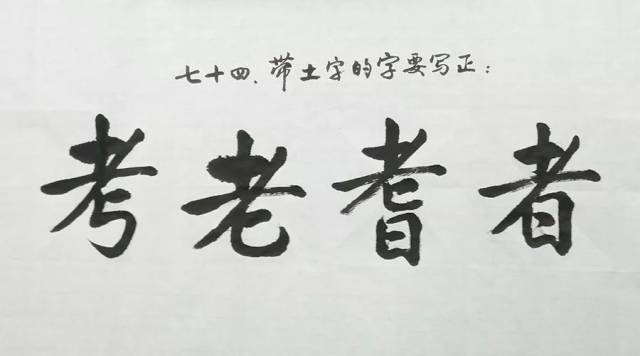 七十四、带土字的字要写正：
考老耆者